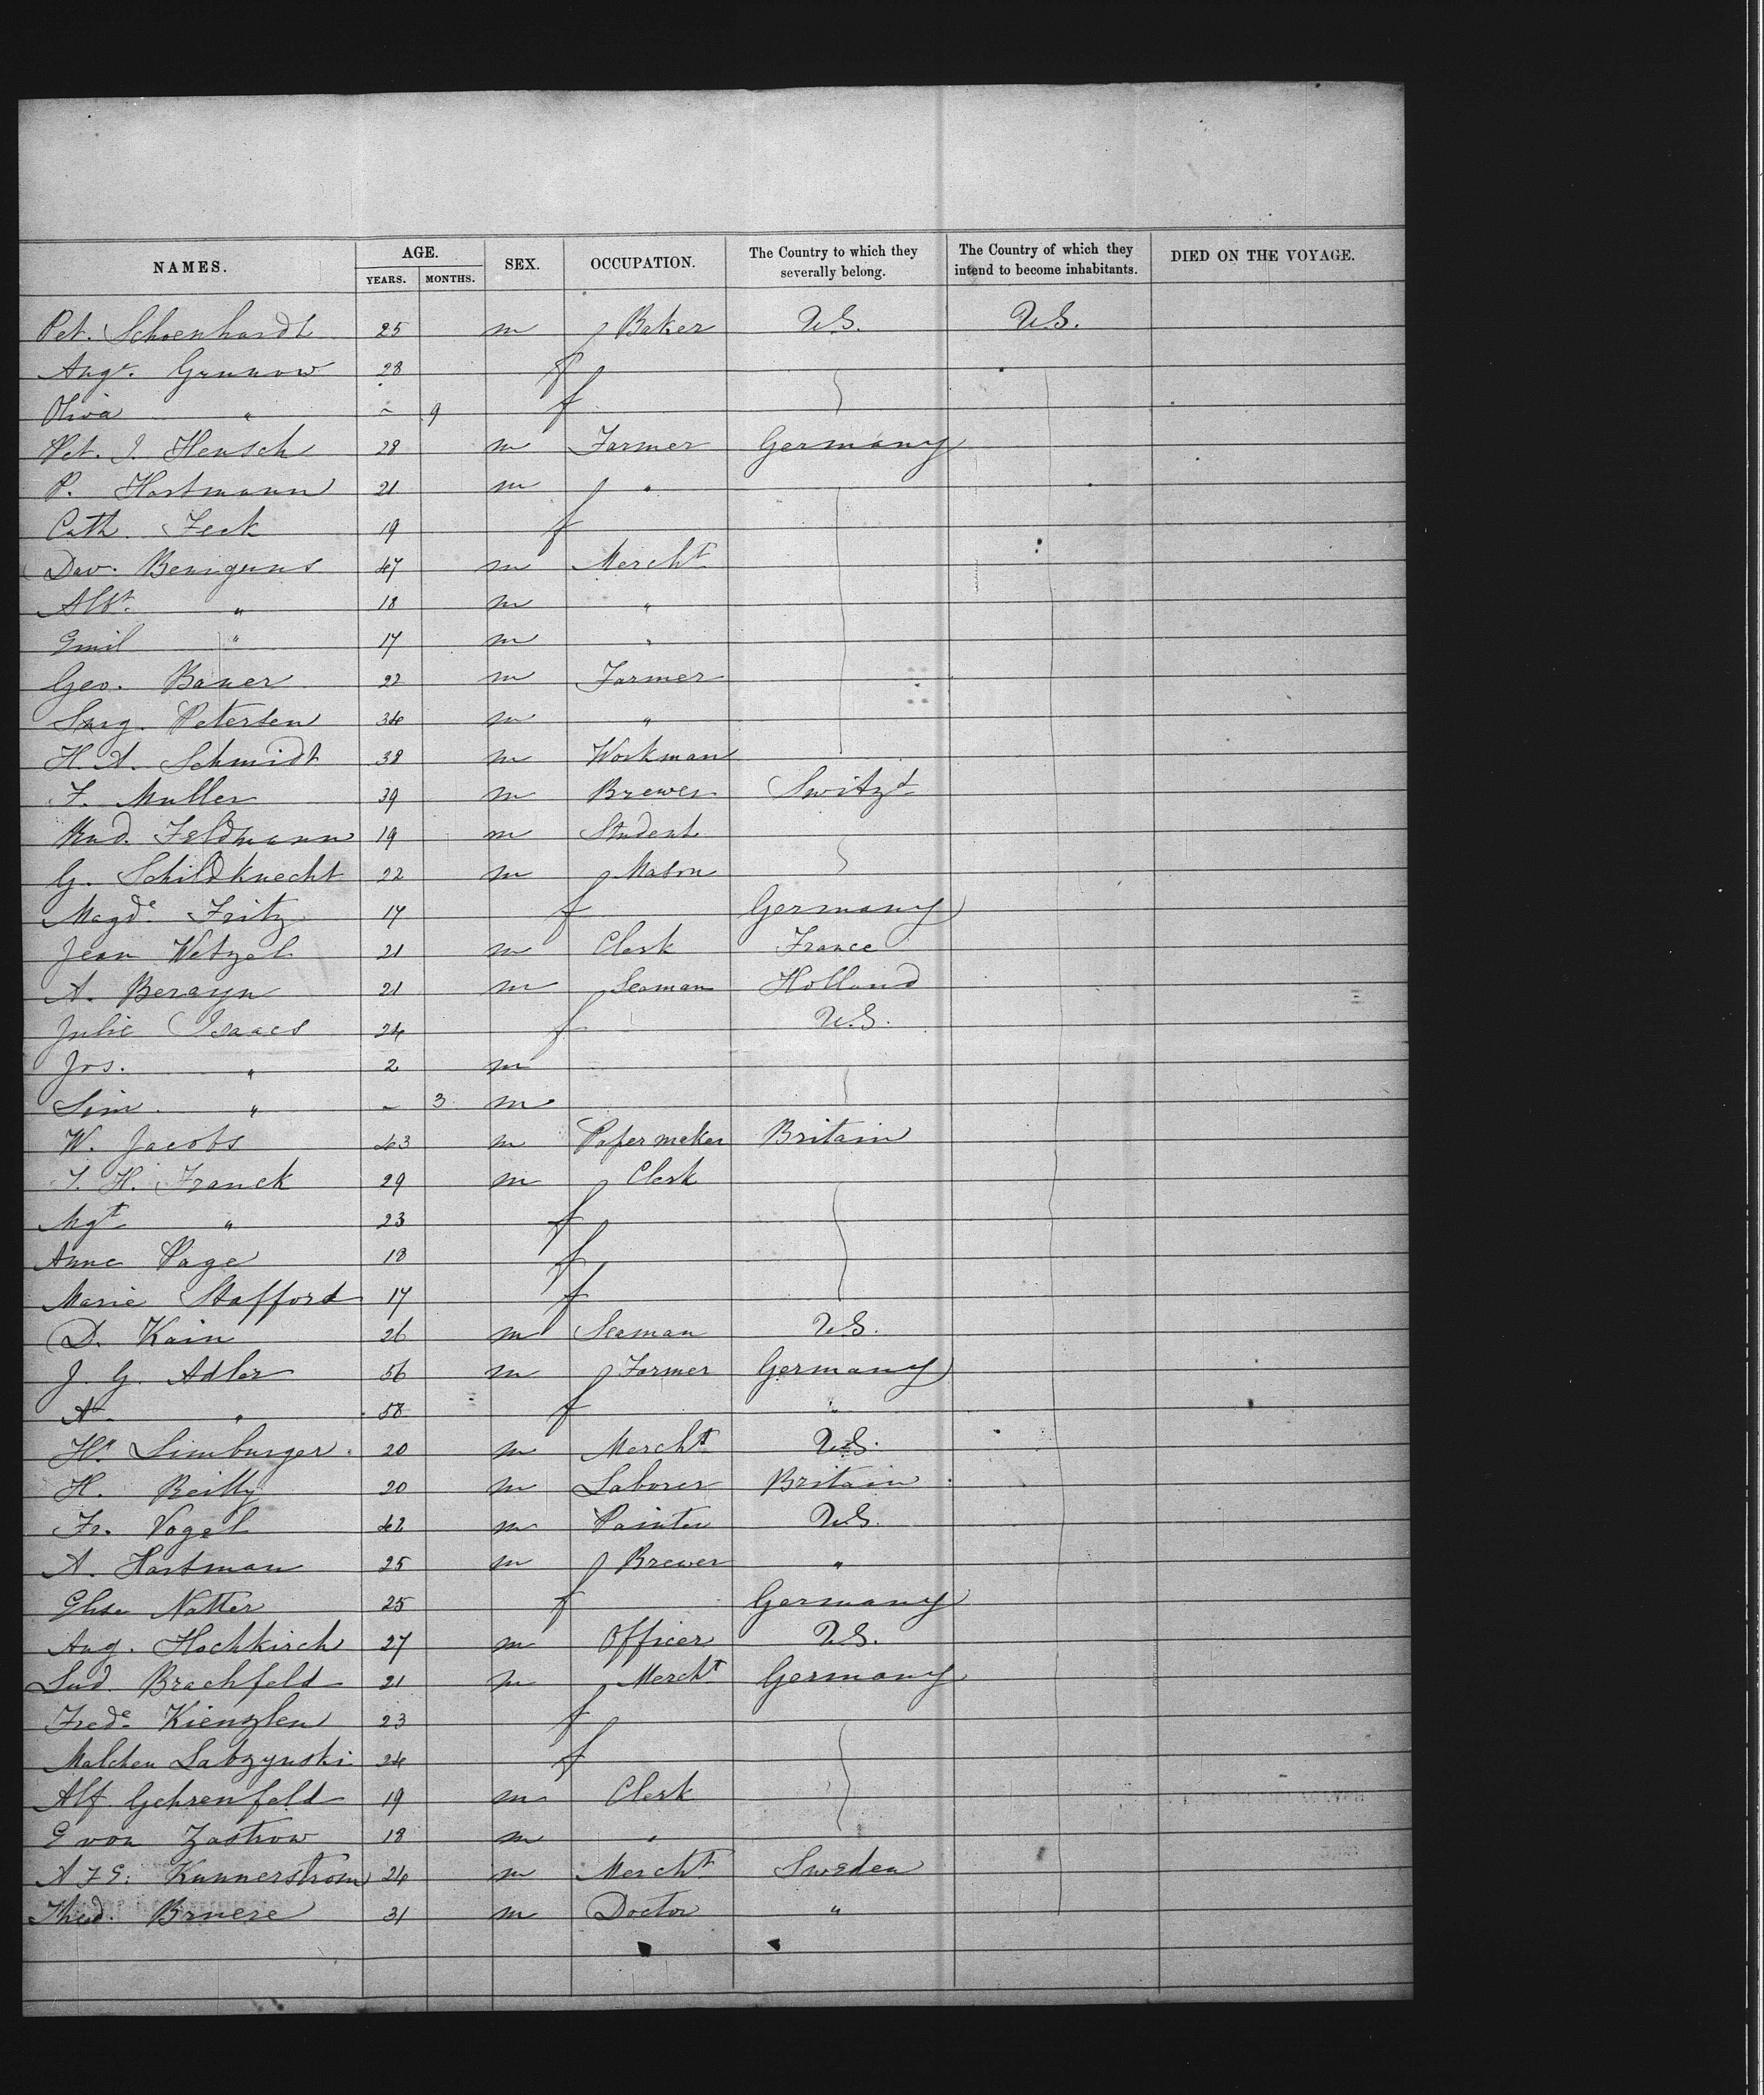 NAMES. AGE. SEX. OCCUPATION. The Country to which they severally belong. The Country of which they intend to become inhabitants. DIED ON THE VOYAGE.
YEARS. MONTHS.
Pet. Schoenhardt 25 m Baker U.S. U.S.
Augt. Grunow 28 f
Oliva " - 9 f
Pet. J. Hensch 28 m Farmer Germany
P. Hartmann 21 m "
Cath. Feck 19 f
Dav. Benignus 47 m Mercht
Albt. " 18 m "
Emil " 17 m "
Geo. Bauer 22 m Farmer
Petersen 34 m "
H. A. Schmidt 38 m Workman
F. Muller 39 m Brewer Switzd
Rud. Feldmann 19 m Student
G. Schildknecht 22 m Mason
Magde. Fritz 17 f Germany
Jean Wetzel 21 m Clerk France
A. Berayn 21 m Seaman Holland
Julie Isaacs 24 f U.S.
Jos. " 2 m
Sim " - 3 m
W. Jacobs 43 m Paper maker Britain
J. H. Franck 29 m Clerk
Mgt " 23 f
Anne Page 18 f
Marie Stafford 17 f
D. Kain 26 m Seaman U.S.
J. G. Adler 56 m Farmer Germany
A. " 58 f "
Hr. Limburger 20 m Mercht U.S.
H. Reilly 20 m Laborer Britain
Fr. Vogel 42 m Painter U.S.
A. Hartman 25 m Brewer "
Elise Natter 25 f Germany
Aug. Hochkirch 27 m Officer U.S.
Lud. Brachfeld 21 m Mercht Germany
Frede. Kienzlen 23 f
Malchen Labzynski 24 f
Alf. Gehrenfeld 19 m Clerk
E von Zastrow 18 m "
A F E. Kunnerstrom 24 m Mercht Sweden
Theod. Bruere 31 m Doctor "